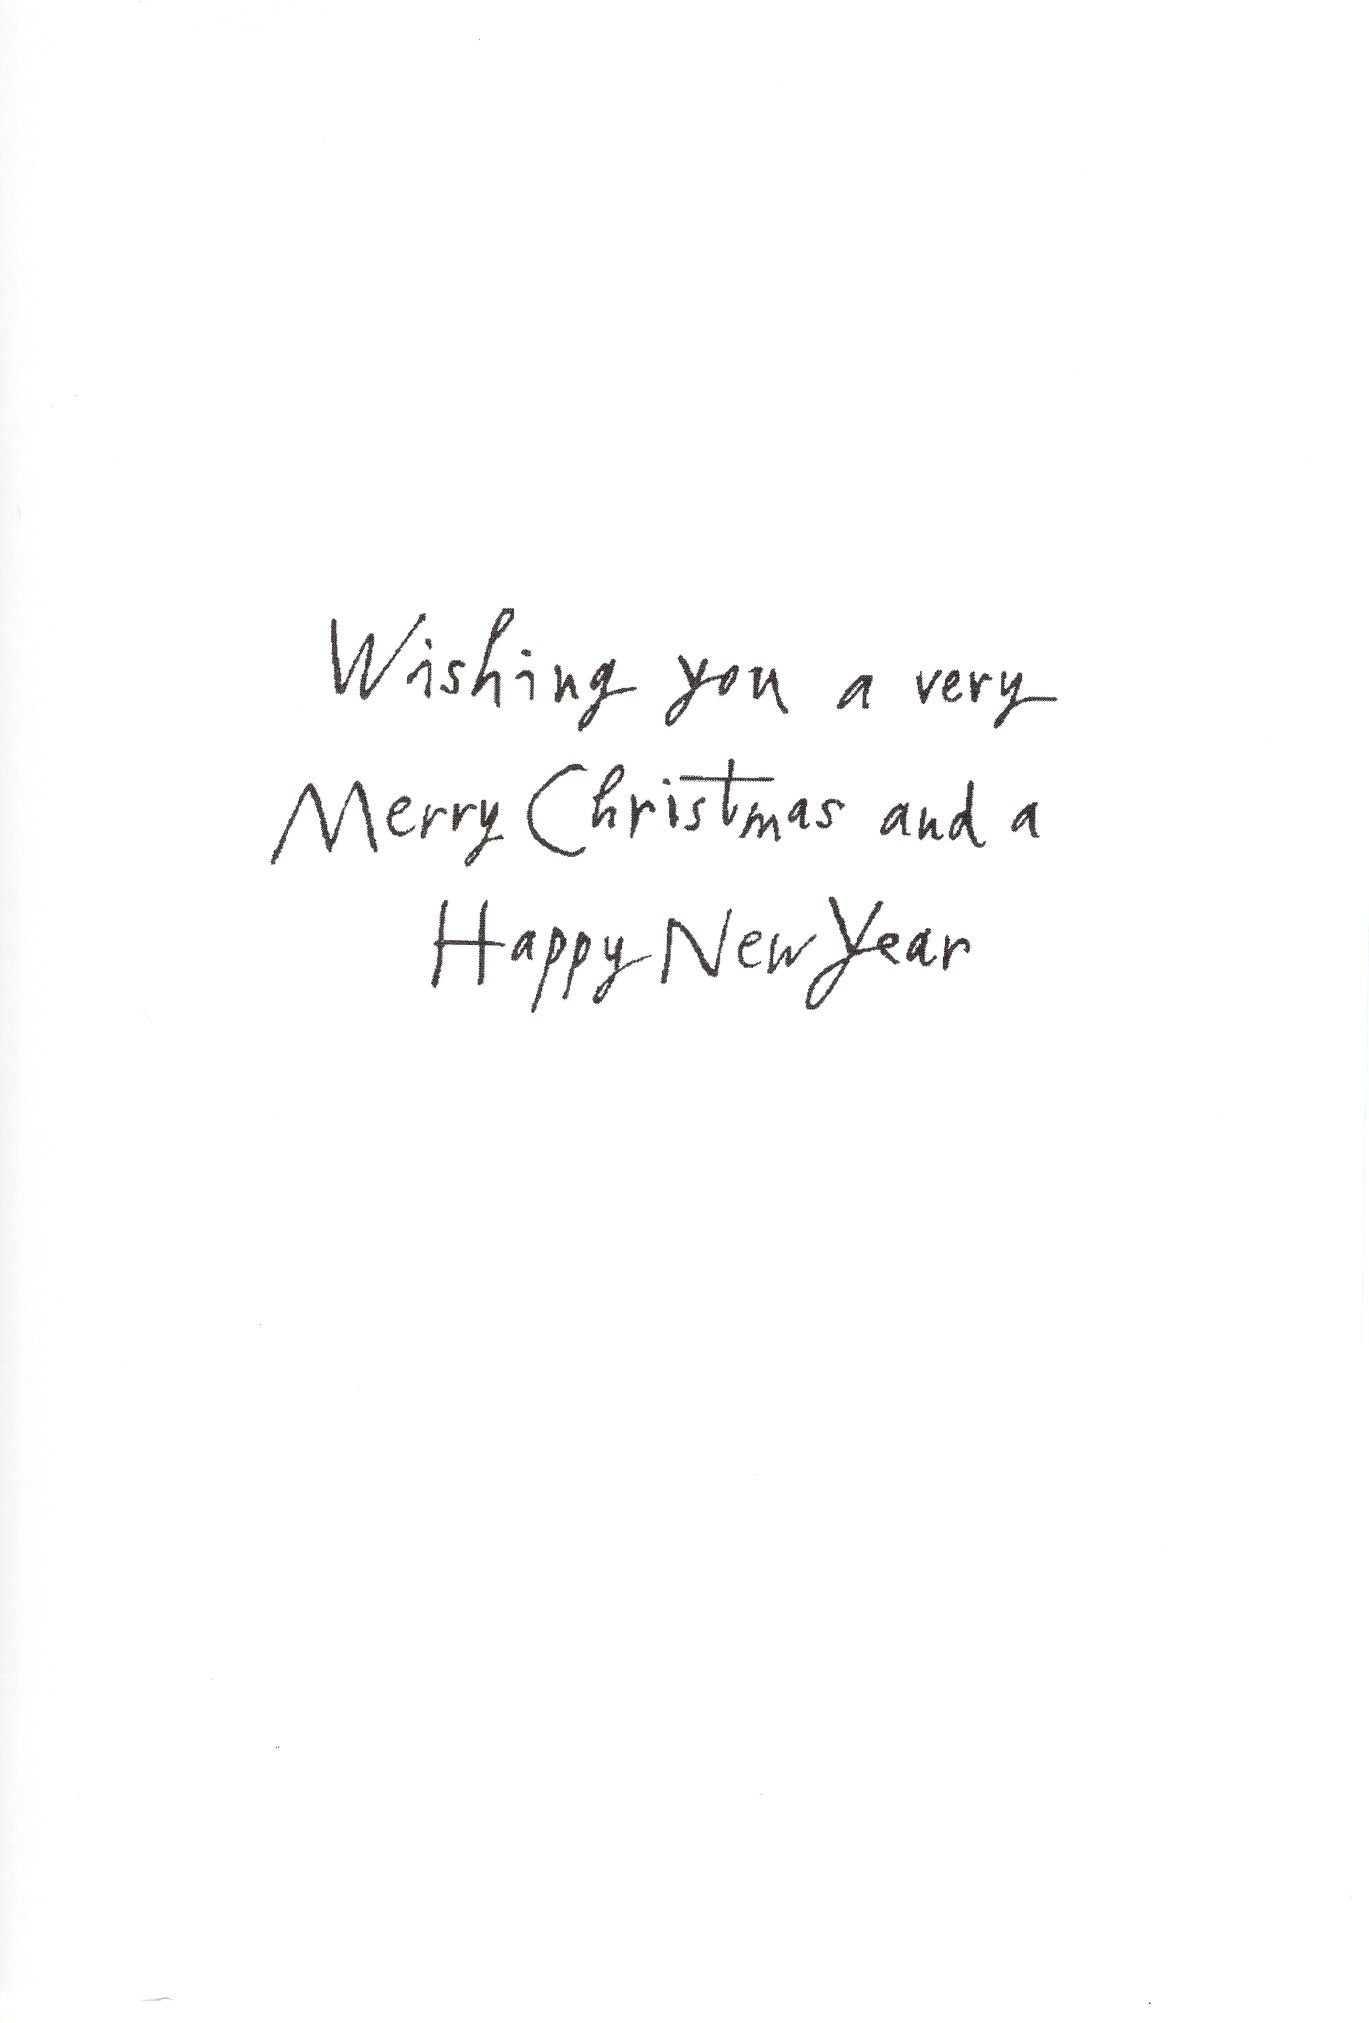 Wishing you a very
Merry Christmas and a
Happy New Year